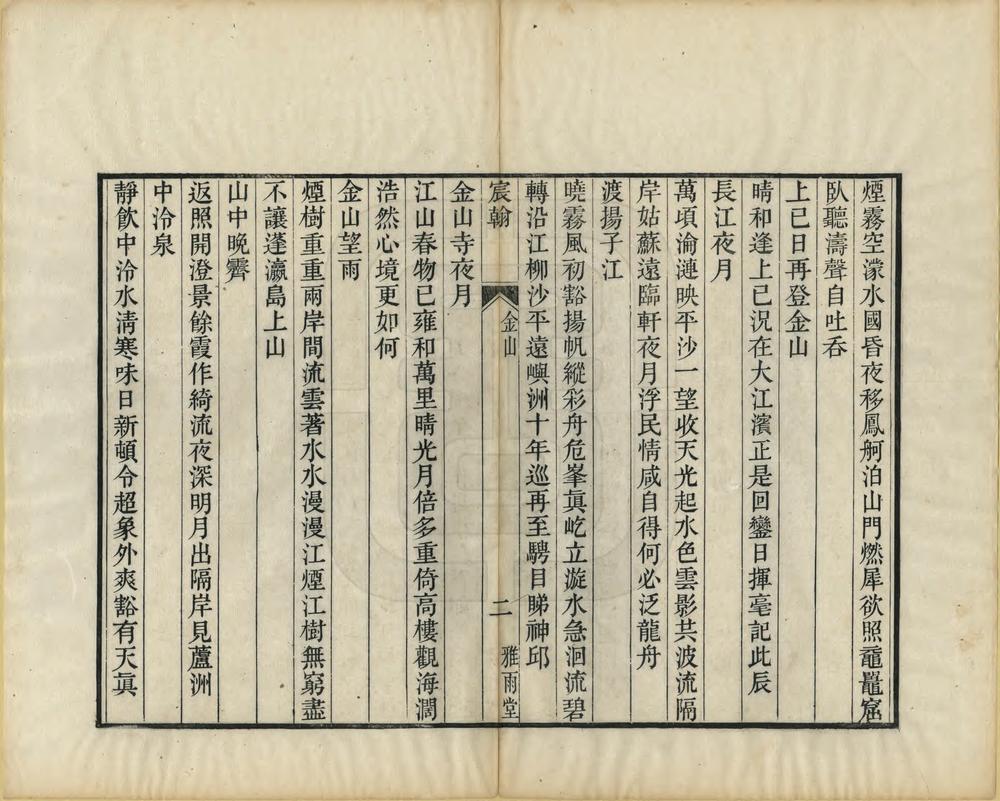 煙霧空濛水國昏夜移鳳舸泊山門燃犀欲照黿鼉窟
臥聽濤聲自吐呑
上巳日再登金山
晴和逢上巳況在大江濱正是回鑾日揮毫記此辰
長江夜月
萬頃淪漣映平沙一望收天光起水色雲影共波流隔
岸姑蘇遠臨軒夜月浮民情咸自得何必泛龍舟
渡揚子江
曉霧風初豁揚帆縱彩舟危峯眞屹立漩水急洄流碧
轉沿江柳沙平遠嶼洲十年巡再至騁目睇神邱
宸翰
金山
二
雅雨堂
金山寺夜月
江山春物已雍和萬里晴光月倍多重倚高樓觀海濶
浩然心境更如何
金山望雨
煙樹重重兩岸間流雲著水水漫漫江煙江樹無窮盡
不讓蓬瀛島上山
山中晚霽
返照開澄景餘霞作綺流夜深明月出隔岸見蘆洲
中泠泉
靜飮中泠水淸寒味日新頓令超象外爽豁有天眞